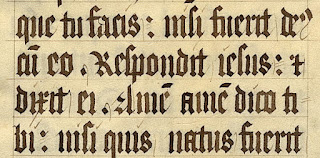 que tu facis: nisi fuerit deꝰ
cū eo. Respondit iesus: ⁊
dixit ei. Amē amē dico ti
bi: nisi quis natus fuerit